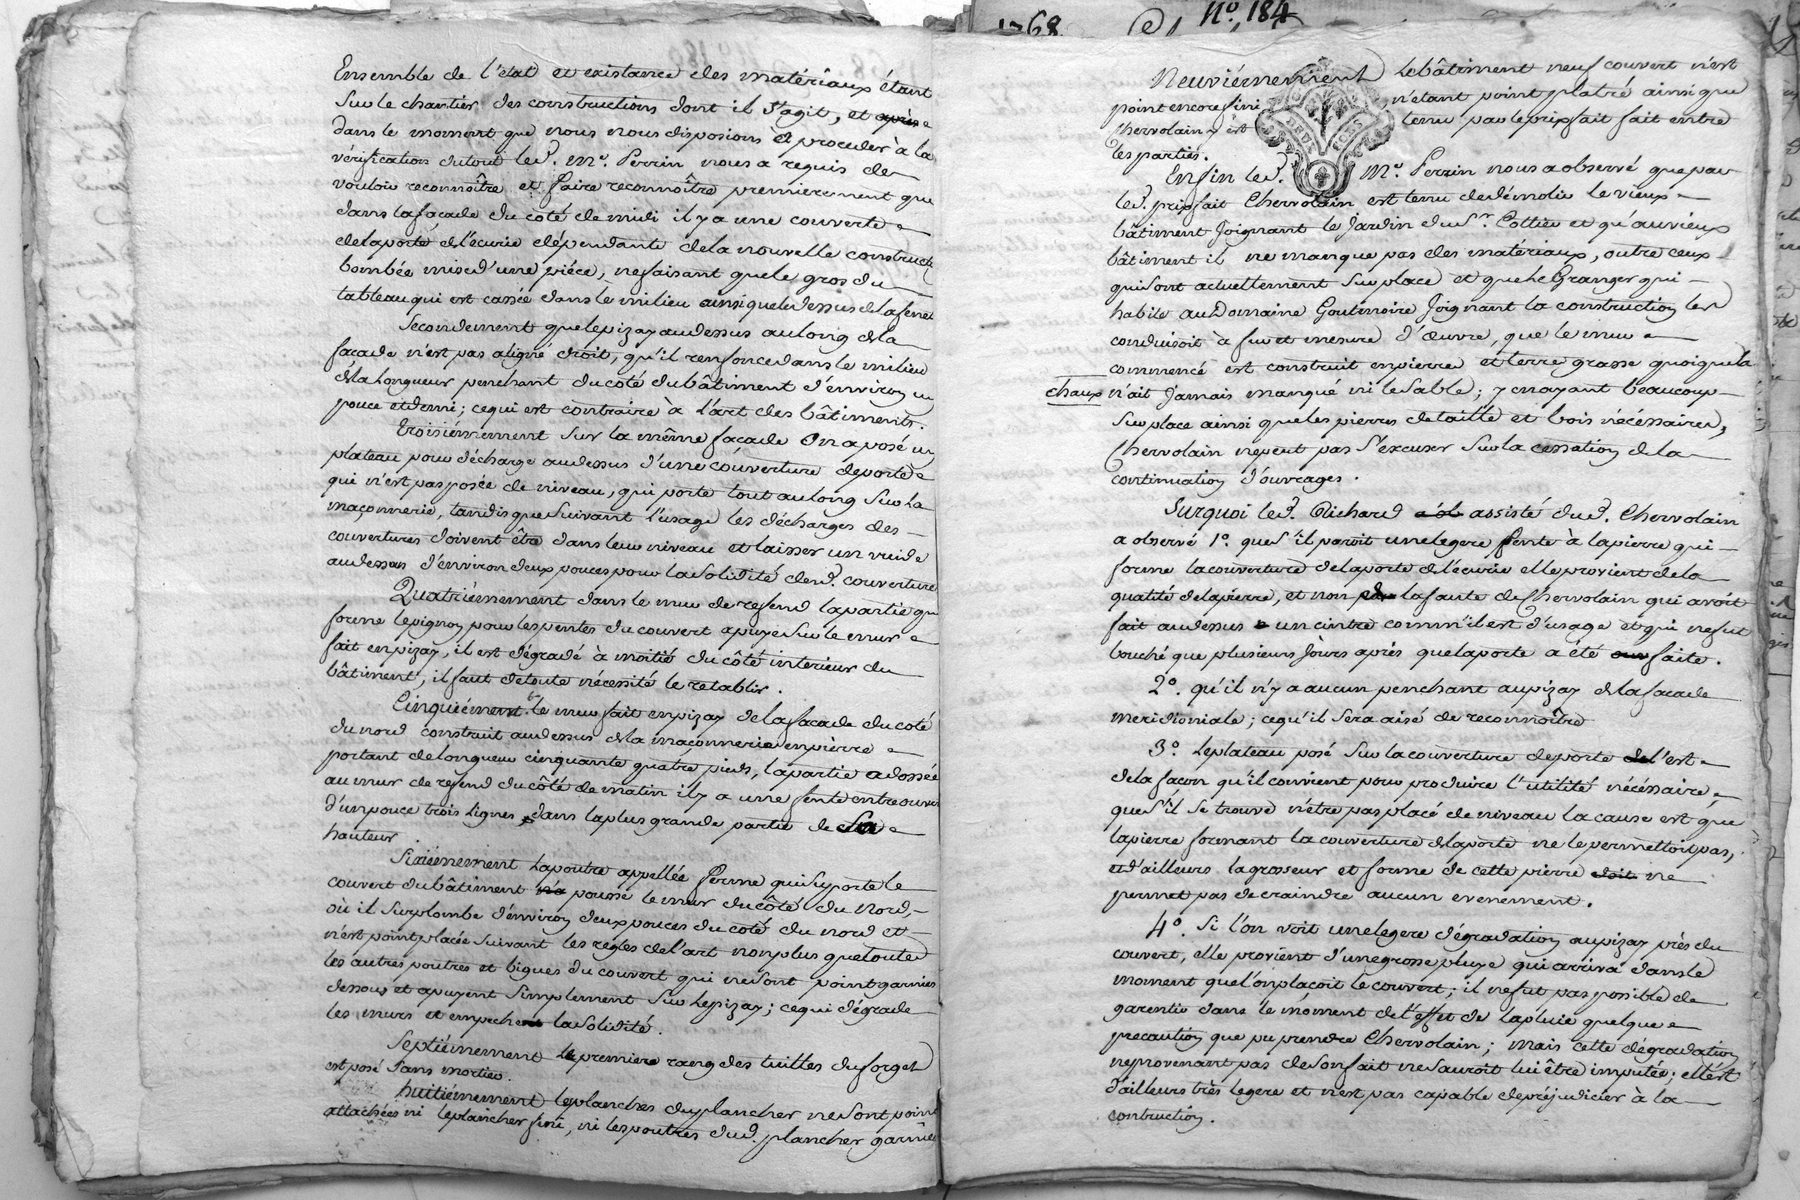 Ensemble de l'etat et existance des matériaux étant
sur le chantier des constructions dont il s'agit, et après
dans le moment que nous nous disposions à proceder à la
vérification du tout led. Me. Perrin nous a requis de
vouloir reconnoître et faire reconnoître premierement que
dans la façade du coté de midi il y a une couverte
de la porte de l'écurie dépendante de la nouvelle constructi
bombée mise d'une piéce, ne faisant que le gros du
tableau qui est cassée dans le milieu ainsi que le dessus de la fenet
Secondement que le pizay au dessus au long de la
façade n'est pas aligné droit, qu'il renfonce dans le milieu
de la longueur penchant du coté du bâtiment d'environ un
pouce et demi; ce qui est contraire à l'art des bâtiments.
Troisiémement sur la même façade on a posé un
plateau pour décharge au dessus d'une couverture de porte
qui n'est pas posée de niveau, qui porte tout au long sur la
maçonnerie, tandis que suivant l'usage les décharges des
couvertures doivent être dans leur niveau et laisser un vuide
au dessus d'environ deux pouces pour la solidité de d. couverture
Quatriémement dans le mur de refend la partie qui
forme le pignon pour les pentes du couvert apuyé sur le mur
fait en pizay, il est dégradé à moitié du côté interieur du
bâtiment, il faut de toute nécessité le retablir.
Cinquiément le mur fait en pizay de la façade du coté
du nord construit au dessus de la maçonnerie en pierre
portant de longueur cinquante quatre pieds, la partie adossée
au mur de refend du côté de matin il y a une fente entre ouver
d'un pouce trois lignes, dans la plus grande partie de sa
hauteur.
Sixiémement la poutre appellée ferme qui suporte le
couvert du bâtiment n'a poussé le mur du côté du nord,
où il surplombe d'environ deux pouces du coté du nord et
n'est point placée suivant les regles de l'art non plus que toute
les autres poutres et bigues du couvert qui ne sont point garnies
dessous et apuyent simplement sur le pizay; ce qui dégrade
les murs et empeche la solidité.
Septiémement le premiere rang des tuilles du forget
est posé sans mortier.
huitiémement les planches du plancher ne sont point
attachées ni le plancher fini, ni les poutres dud. plancher garnie
1768 No. 184
Neuviémement le bâtiment neuf couvert n'est
point encore fini n'etant point platré ainsi que
Chervolain y est tenu par le prix fait fait entre
les parties.
Enfin led. Me. Perrin nous a observé que par
led. prix fait Chervolain est tenu de démolir le vieux
bâtiment joignant le jardin du Sr. Cottier et qu'au vieux
bâtiment il ne manque pas des matériaux, outre ceux
qui sont actuellement sur place et que le Granger qui
habite au Domaine Goutinoire joignant la construction les
conduisoit à fur et mesure d'œuvre, que le mur
commencé est construit en pierre et terre grasse quoique la
chaux n'ait jamais manqué ni le sable; y en ayant beaucoup
sur place ainsi que les pierres de taille et bois nécéssaires,
Chervolain ne peut pas s'excuser sur la cessation de la
continuation d'ouvrages.
Surquoi led. Richard assisté dud. Chervolain
a observé 1o. que s'il paroit une legere fente à la pierre qui
forme la couverture de la porte de l'écurie elle provient de la
qualité de la pierre, et non la faute de Chervolain qui avoit
fait au dessus un cintre comm'il est d'usage et qui ne fut
bouché que plusieurs jours après que la porte a été faite.
2o. qu'il n'y a aucun penchant au pizay de la facade
meridioniale; ce qu'il sera aisé de reconnoître
3o. le plateau posé sur la couverture de porte l'est
de la façon qu'il convient pour produire l'utilité nécéssaire,
que s'il se trouve n'etre pas placé de niveau la cause est que
la pierre formant la couverture de la porte ne le permettoit pas,
et d'ailleurs la grosseur et forme de cette pierre doit ne
permet pas de craindre aucun evenement.
4o. Si l'on voit une legere dégradation au pizay près du
couvert, elle provient d'une grosse pluye qui arriva dans le
moment que l'on plaçoit le couvert; il ne fut pas possible de
garentir dans le moment de l'effet de la pluie quelque
precaution que pu prendre Chervolain; mais cette dégradation
ne provenant pas de son fait ne sauroit lui être imputée; elle est
d'ailleurs très legere et n'est pas capable de préjudicier à la
contruction.